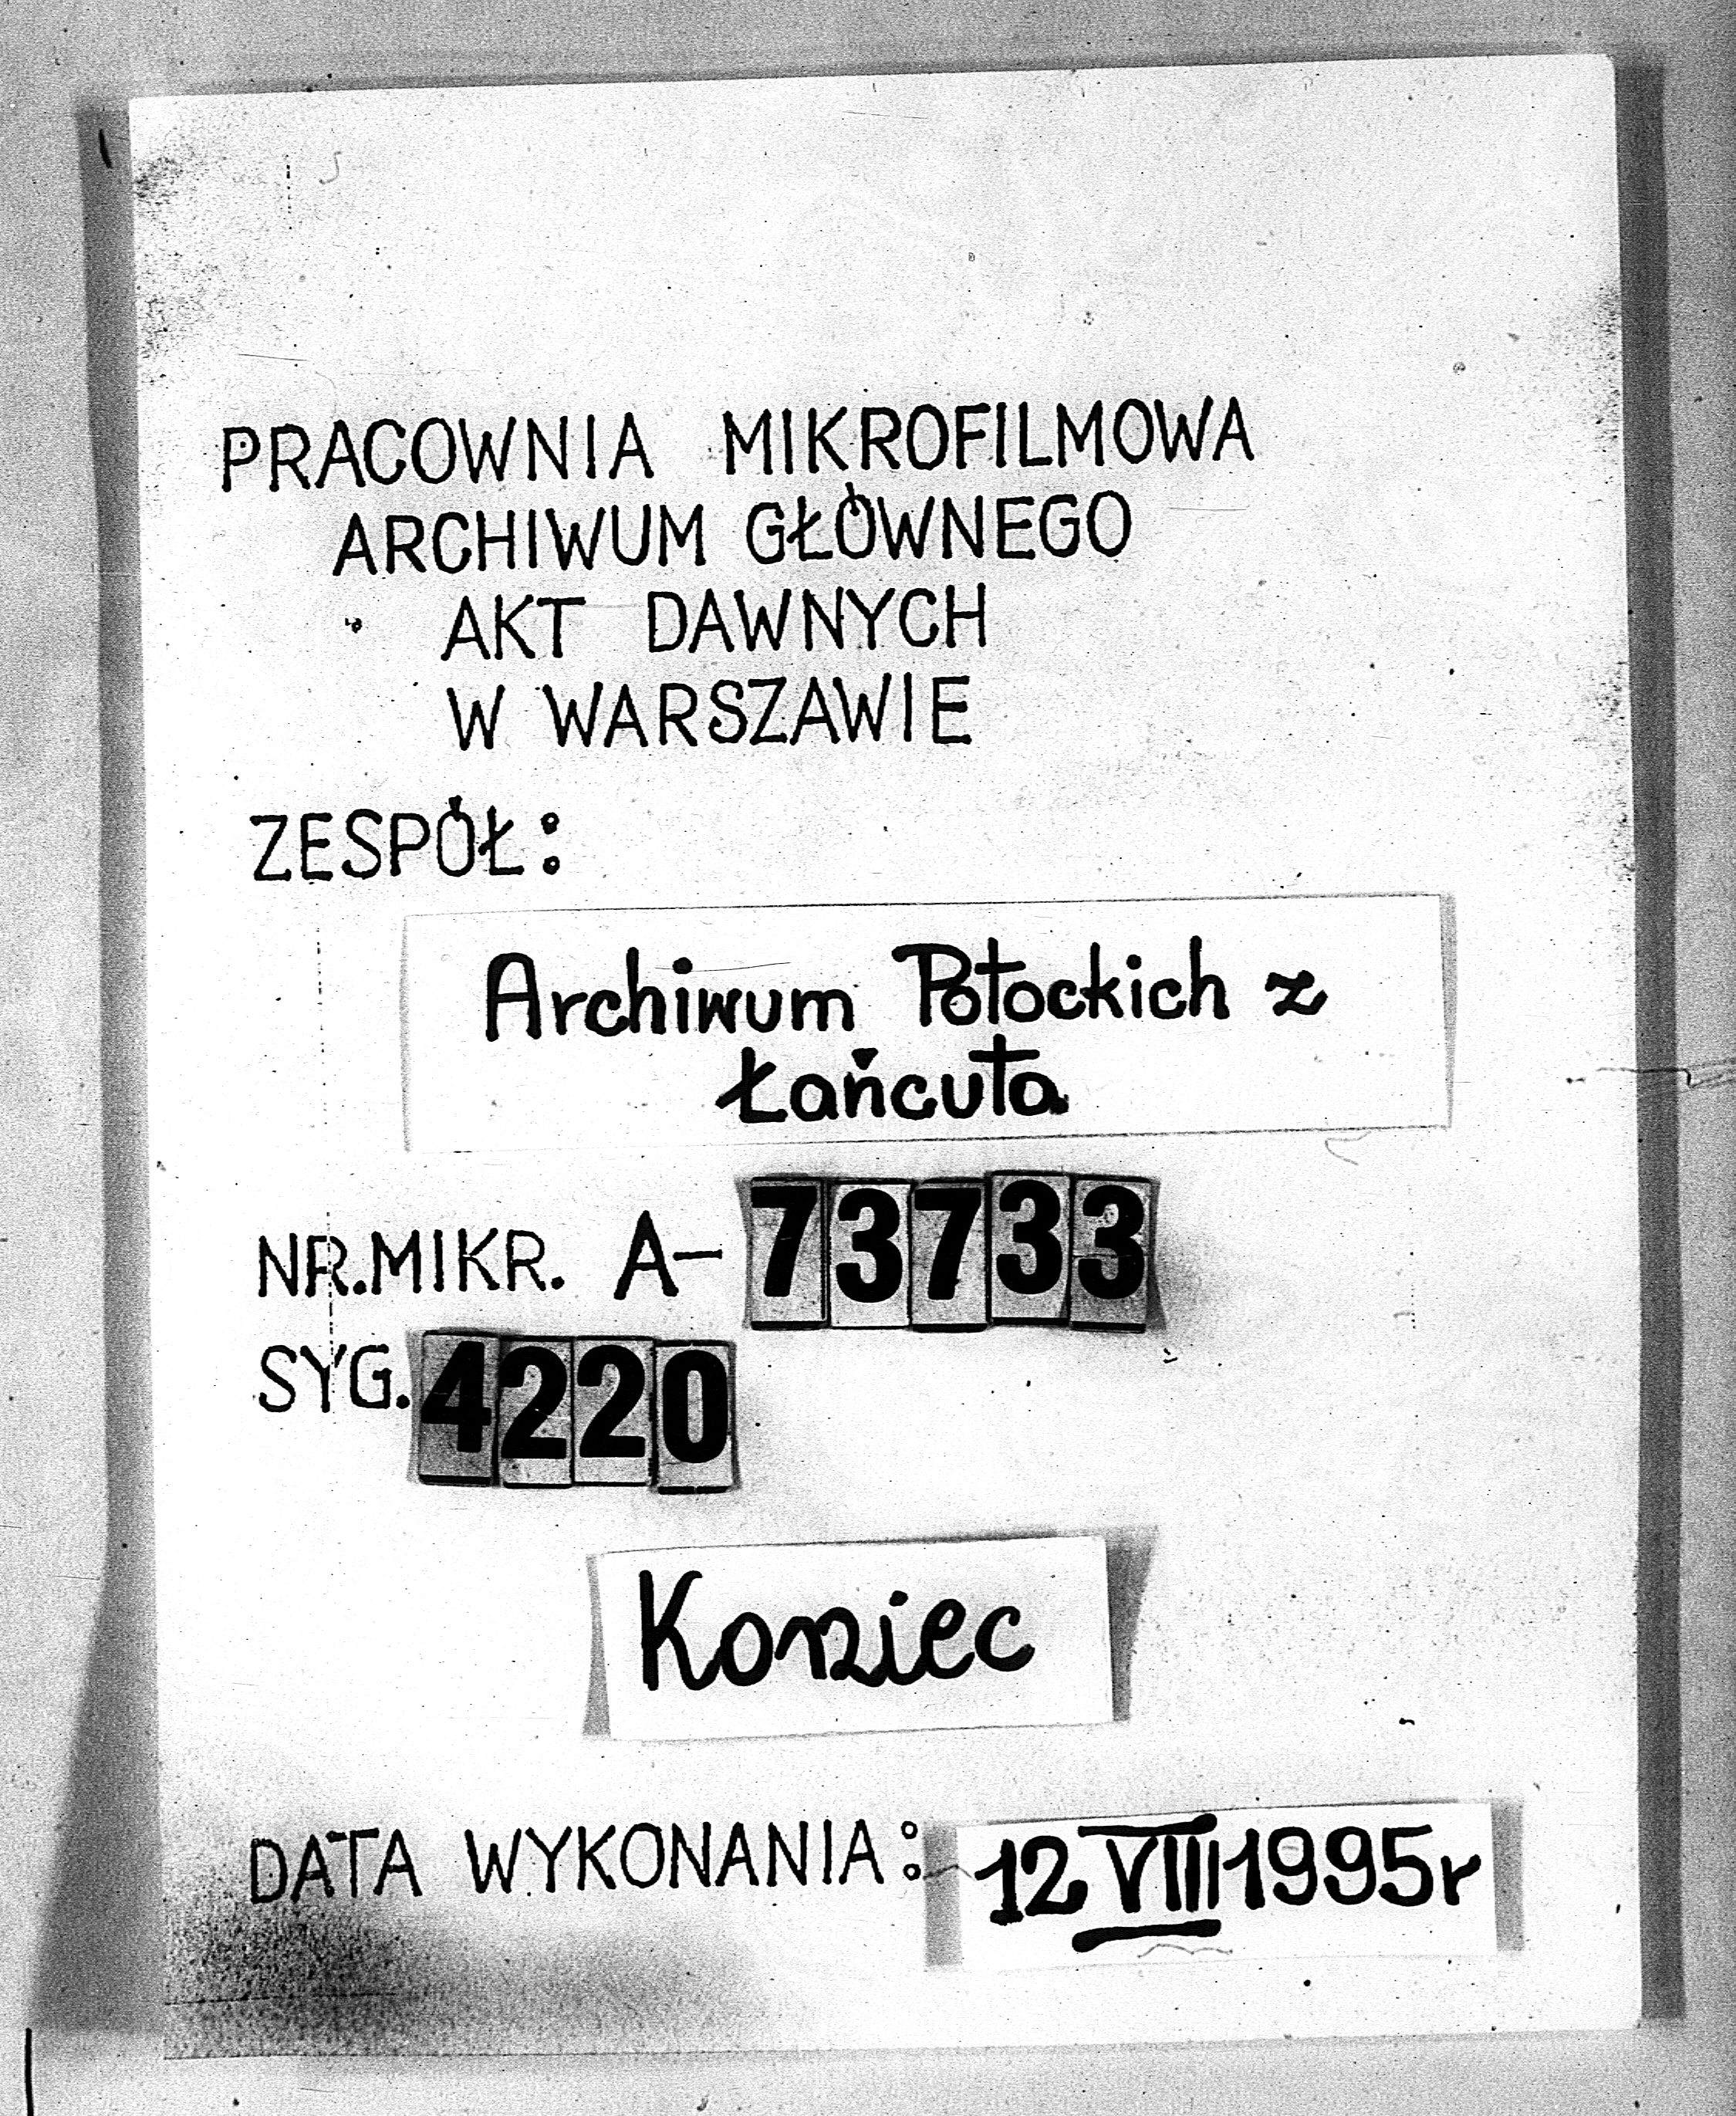 PRACOWNIA MIKROFILMOWA
ARCHIWUM GŁÓWNEGO
AKT DAWNYCH
W WARSZAWIE
ZESPÓŁ:
Archiwum Potockich z
Łańcuta
NR.MIKR. A- 73733
SYG. 4220
Koniec
DATA WYKONANIA: 12 VIII 1995r